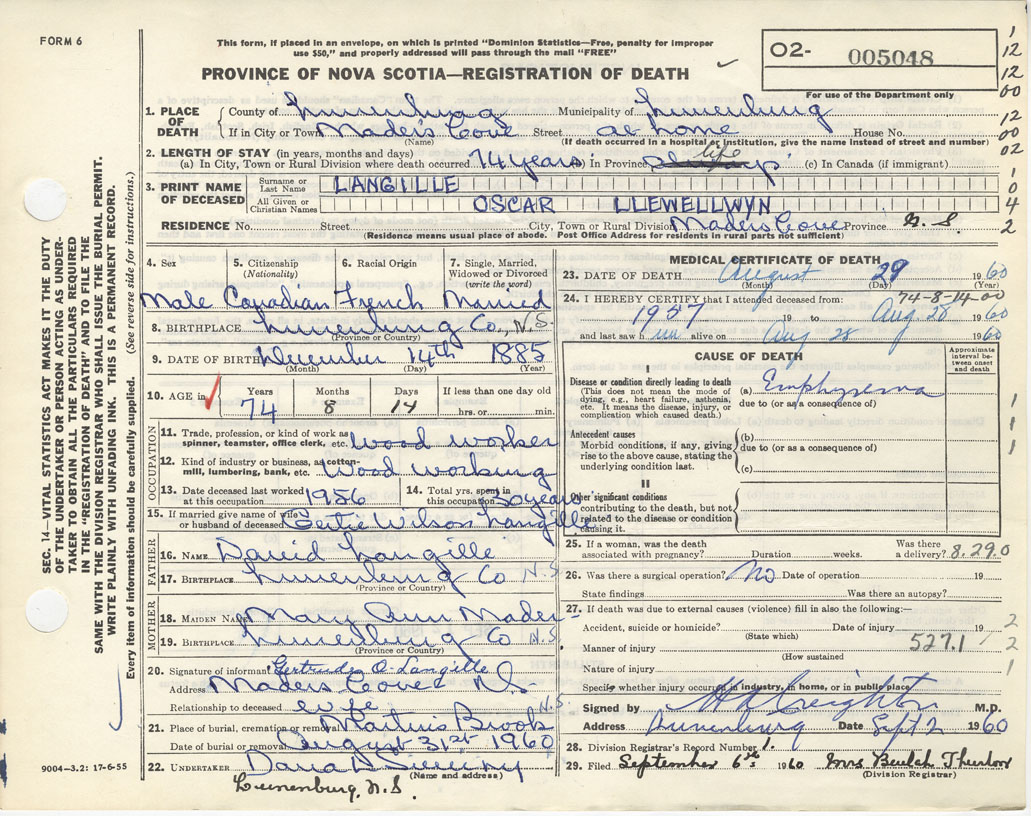 FORM 6
This form, if placed in an envelope, on which is printed "Dominion Statistics—Free, penalty for improper
use $50," and properly addressed will pass through the mail "FREE"
PROVINCE OF NOVA SCOTIA—REGISTRATION OF DEATH
O2- 005048
For use of the Department only
1
12
12
00
12
00
02
1
0
4
2
1. PLACE OF DEATH
County of Lunenburg Municipality of Lunenburg
If in City or Town Maders Cove Street at home House No.
(Name) (If death occurred in a hospital or institution, give the name instead of street and number)
2. LENGTH OF STAY (in years, months and days)
(a) In City, Town or Rural Division where death occurred 74 years (b) In Province life (c) In Canada (if immigrant)
3. PRINT NAME OF DECEASED
Surname or Last Name LANGILLE
All Given or Christian Names OSCAR LLEWELLWYN
RESIDENCE No. Street City, Town or Rural Division Maders Cove Province N.S.
(Residence means usual place of abode. Post Office Address for residents in rural parts not sufficient)
SEC. 14—VITAL STATISTICS ACT MAKES IT THE DUTY
OF THE UNDERTAKER OR PERSON ACTING AS UNDER-
TAKER TO OBTAIN ALL THE PARTICULARS REQUIRED
IN THE "REGISTRATION OF DEATH" AND TO FILE THE
SAME WITH THE DIVISION REGISTRAR WHO SHALL ISSUE THE BURIAL PERMIT.
WRITE PLAINLY WITH UNFADING INK. THIS IS A PERMANENT RECORD.
Every item of information should be carefully supplied. (See reverse side for instructions.)
4. Sex 5. Citizenship (Nationality) 6. Racial Origin 7. Single, Married, Widowed or Divorced (write the word)
Male Canadian French Married
8. BIRTHPLACE Lunenburg Co., N.S.
(Province or Country)
9. DATE OF BIRTH December 14th 1885
(Month) (Day) (Year)
10. AGE in Years Months Days If less than one day old
74 8 14 hrs. or min.
OCCUPATION
11. Trade, profession, or kind of work as spinner, teamster, office clerk, etc. Wood worker
12. Kind of industry or business, as cotton-mill, lumbering, bank, etc. Wood working
13. Date deceased last worked at this occupation 1956 14. Total yrs. spent in this occupation 30 years
15. If married give name of wife or husband of deceased Gertie Wilson Langille
FATHER
16. NAME David Langille
17. BIRTHPLACE Lunenburg Co N.S.
(Province or Country)
MOTHER
18. MAIDEN NAME Mary Ann Mader
19. BIRTHPLACE Lunenburg Co N.S.
(Province or Country)
20. Signature of informant Gertrude O. Langille
Address Maders Cove N.S.
Relationship to deceased wife
21. Place of burial, cremation or removal Martins Brook N.S.
Date of burial or removal August 31st 1960
22. UNDERTAKER
(Name and address)
Lunenburg, N.S.
9004-3.2: 17-6-55
MEDICAL CERTIFICATE OF DEATH
23. DATE OF DEATH August 29 1960
(Month) (Day)
74-8-14-00
24. I HEREBY CERTIFY that I attended deceased from:
1957 19 to Aug 28 1960
and last saw him alive on Aug 28 1960
CAUSE OF DEATH
Approximate interval between onset and death
I
Disease or condition directly leading to death
(This does not mean the mode of dying, e.g., heart failure, asthenia, etc. It means the disease, injury, or complication which caused death.)
(a) Emphysema
due to (or as a consequence of)
1
1
1
Antecedent causes
Morbid conditions, if any, giving rise to the above cause, stating the underlying condition last.
(b)
due to (or as a consequence of)
(c)
II
Other significant conditions
contributing to the death, but not related to the disease or condition causing it.
25. If a woman, was the death associated with pregnancy? Duration weeks. Was there a delivery? 8.29.0
26. Was there a surgical operation? No Date of operation 19
State findings Was there an autopsy?
27. If death was due to external causes (violence) fill in also the following:—
Accident, suicide or homicide? Date of injury 19 2
(State which)
Manner of injury 527.1 2
(How sustained)
Nature of injury 1
Specify whether injury occurred in industry, in home, or in public place
Signed by H A Creighton M.D.
Address Lunenburg Date Sept 2 1960
28. Division Registrar's Record Number 1.
29. Filed September 6th 1960 Mrs Beulah
(Division Registrar)